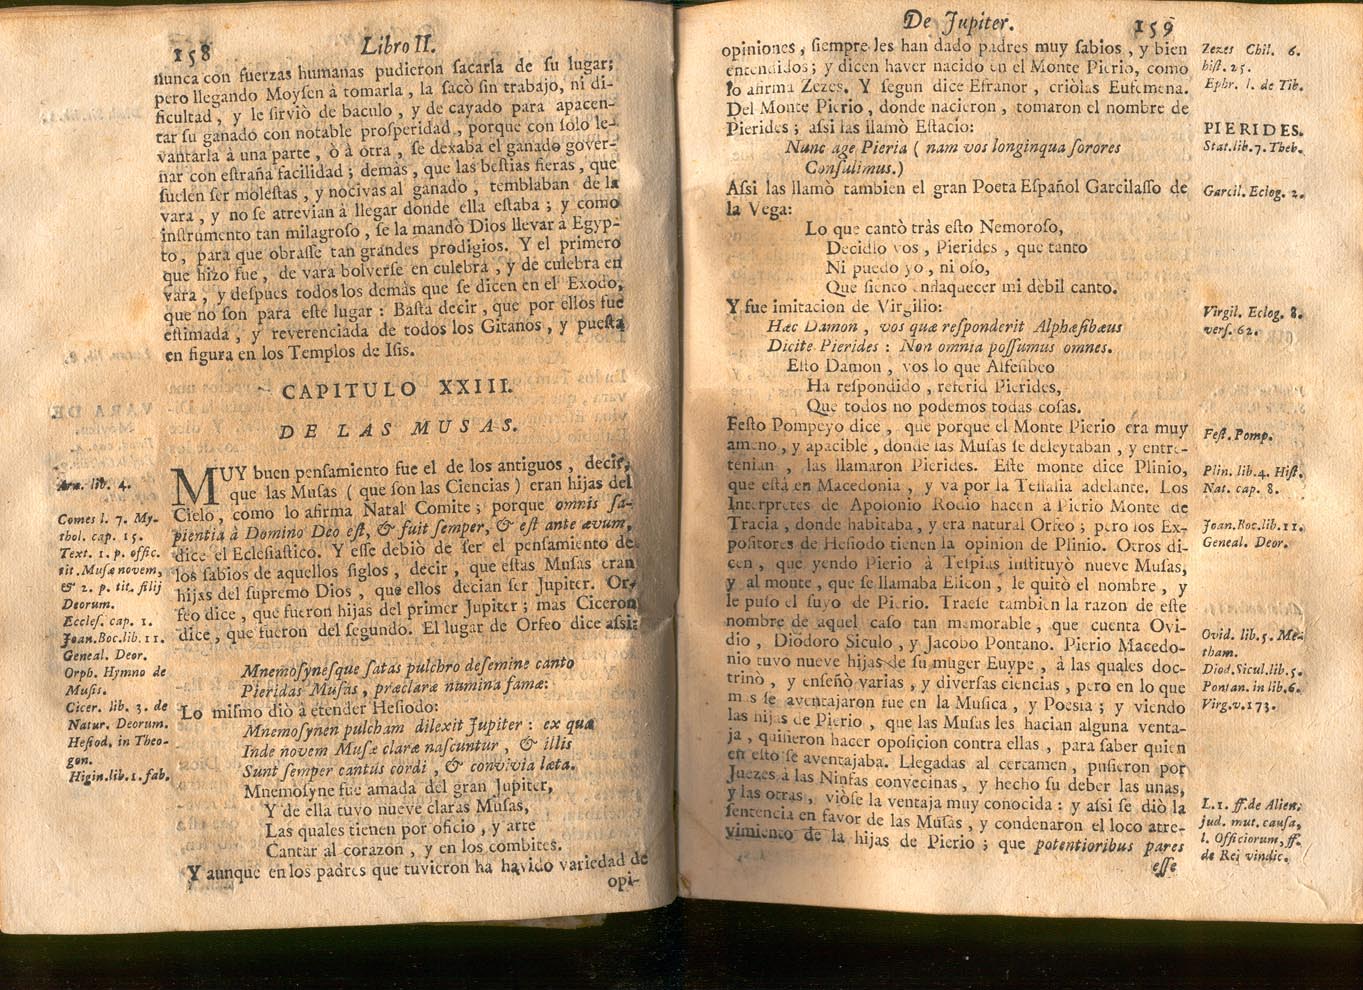 158
Libro II.
nunca con fuerzas humanas pudieron sacarla de su lugar;
pero llegando Moysen à tomarla, la sacò sin trabajo, ni di-
ficultad, y le sirviò de baculo, y de cayado para apacen-
tar su ganado con notable prosperidad, porque con solo le-
vantarla à una parte, ò à otra, se dexaba el ganado gover-
nar con estraña facilidad; demàs, que las bestias fieras, que
suelen ser molestas, y nocivas al ganado, temblaban de la
vara, y no se atrevian à llegar donde ella estaba; y como
instrumento tan milagroso, se la mandò Dios llevar à Egyp-
to, para que obrasse tan grandes prodigios. Y el primero
que hizo fue, de vara bolverse en culebra, y de culebra en
vara, y despues todos los demàs que se dicen en el Exodo,
que no son para este lugar: Basta decir, que por ellos fue
estimada, y reverenciada de todos los Gitanos, y puesta
en figura en los Templos de Isis.
CAPITULO XXIII.
DE LAS MUSAS.
MUY buen pensamiento fue el de los antiguos, decir,
que las Musas (que son las Ciencias) eran hijas del
Cielo, como lo afirma Natal Comite; porque omnis sa-
pientia à Domino Deo est, & fuit semper, & est ante ævum,
dice el Eclesiastico. Y esse debiò de ser el pensamiento de
los sabios de aquellos siglos, decir, que estas Musas eran
hijas del supremo Dios, que ellos decian ser Jupiter. Or-
feo dice, que fueron hijas del primer Jupiter; mas Ciceron
dice, que fueron del segundo. El lugar de Orfeo dice assi:
Mnemosynesque satas pulchro desemine canto
Pieridas Musas, præclaræ numina famæ:
Lo mismo diò à etender Hesiodo:
Mnemosynen pulcham dilexit Jupiter: ex qua
Inde novem Musæ claræ nascuntur, & illis
Sunt semper cantus cordi, & convivia læta.
Mnemosyne fue amada del gran Jupiter,
Y de ella tuvo nueve claras Musas,
Las quales tienen por oficio, y arte
Cantar al corazon, y en los combites.
Y aunque en los padres que tuvieron ha havido variedad de
opi-
lib. 4.
Comes l. 7. My-
thol. cap. 15.
Text. 1. p. offic.
tit. Musæ novem,
& 2. p. tit. filij
Deorum.
Eccles. cap. 1.
Joan. Boc. lib. 11.
Geneal. Deor.
Orph. Hymno de
Musis.
Cicer. lib. 3. de
Natur. Deorum.
Hesiod, in Theo-
gon.
Higin. lib. 1. fab.
De Jupiter.
159
opiniones, siempre les han dado padres muy sabios, y bien
entendidos; y dicen haver nacido en el Monte Pierio, como
lo afirma Zezes. Y segun dice Efranor, criòlas Eufemena.
Del Monte Pierio, donde nacieron, tomaron el nombre de
Pierides; assi las llamò Estacio:
Nunc age Pieria (nam vos longinqua sorores
Consulimus.)
Assi las llamò tambien el gran Poeta Español Garcilasso de
la Vega:
Lo que cantò tràs esto Nemoroso,
Decidlo vos, Pierides, que tanto
Ni puedo yo, ni oso,
Que siento enflaquecer mi dèbil canto.
Y fue imitacion de Virgilio:
Hæc Damon, vos quæ responderit Alphæsibæus
Dicite Pierides: Non omnia possumus omnes.
Esto Damon, vos lo que Alfesibeo
Ha respondido, referid Pierides,
Que todos no podemos todas cosas.
Festo Pompeyo dice, que porque el Monte Pierio era muy
ameno, y apacible, donde las Musas se deleytaban, y entre-
tenian, las llamaron Pierides. Este monte dice Plinio,
que està en Macedonia, y và por la Tesalia adelante. Los
Interpretes de Apolonio Rodio hacen à Pierio Monte de
Tracia, donde habitaba, y era natural Orfeo; pero los Ex-
positores de Hesiodo tienen la opinion de Plinio. Otros di-
cen, que yendo Pierio à Tespias instituyò nueve Musas,
y al monte, que se llamaba Elicon, le quitò el nombre, y
le puso el suyo de Pierio. Traese tambien la razon de este
nombre de aquel caso tan memorable, que cuenta Ovi-
dio, Diodoro Siculo, y Jacobo Pontano. Pierio Macedo-
nio tuvo nueve hijas de su muger Euype, à las quales doc-
trinò, y enseñò varias, y diversas ciencias, pero en lo que
mas se aventajaron fue en la Musica, y Poesia; y viendo
las hijas de Pierio, que las Musas les hacian alguna venta-
ja, quisieron hacer oposicion contra ellas, para saber quien
en esto se aventajaba. Llegadas al certamen, pusieron por
Juezes à las Ninfas convecinas, y hecho su deber las unas,
y las otras, viòse la ventaja muy conocida: y assi se diò la
sentencia en favor de las Musas, y condenaron el loco atre-
vimiento de la hijas de Pierio; que potentioribus pares
esse
Zezes Chil. 6.
hist. 25.
Ephr. l. de Tib.
PIERIDES.
Stat. lib. 7. Theb.
Garcil. Eclog. 2.
Virgil. Eclog. 8.
vers. 62.
Fest. Pomp.
Plin. lib. 4. Hist.
Nat. cap. 8.
Joan. Boc. lib. 11.
Geneal. Deor.
Ovid. lib. 5. Me-
tham.
Diod. Sicul. lib. 5.
Pontan. in lib. 6.
Virg. v. 173.
L. 1. ff. de Alien.
jud. mut. causa,
l. Officiorum, ff.
de Rei vindic.